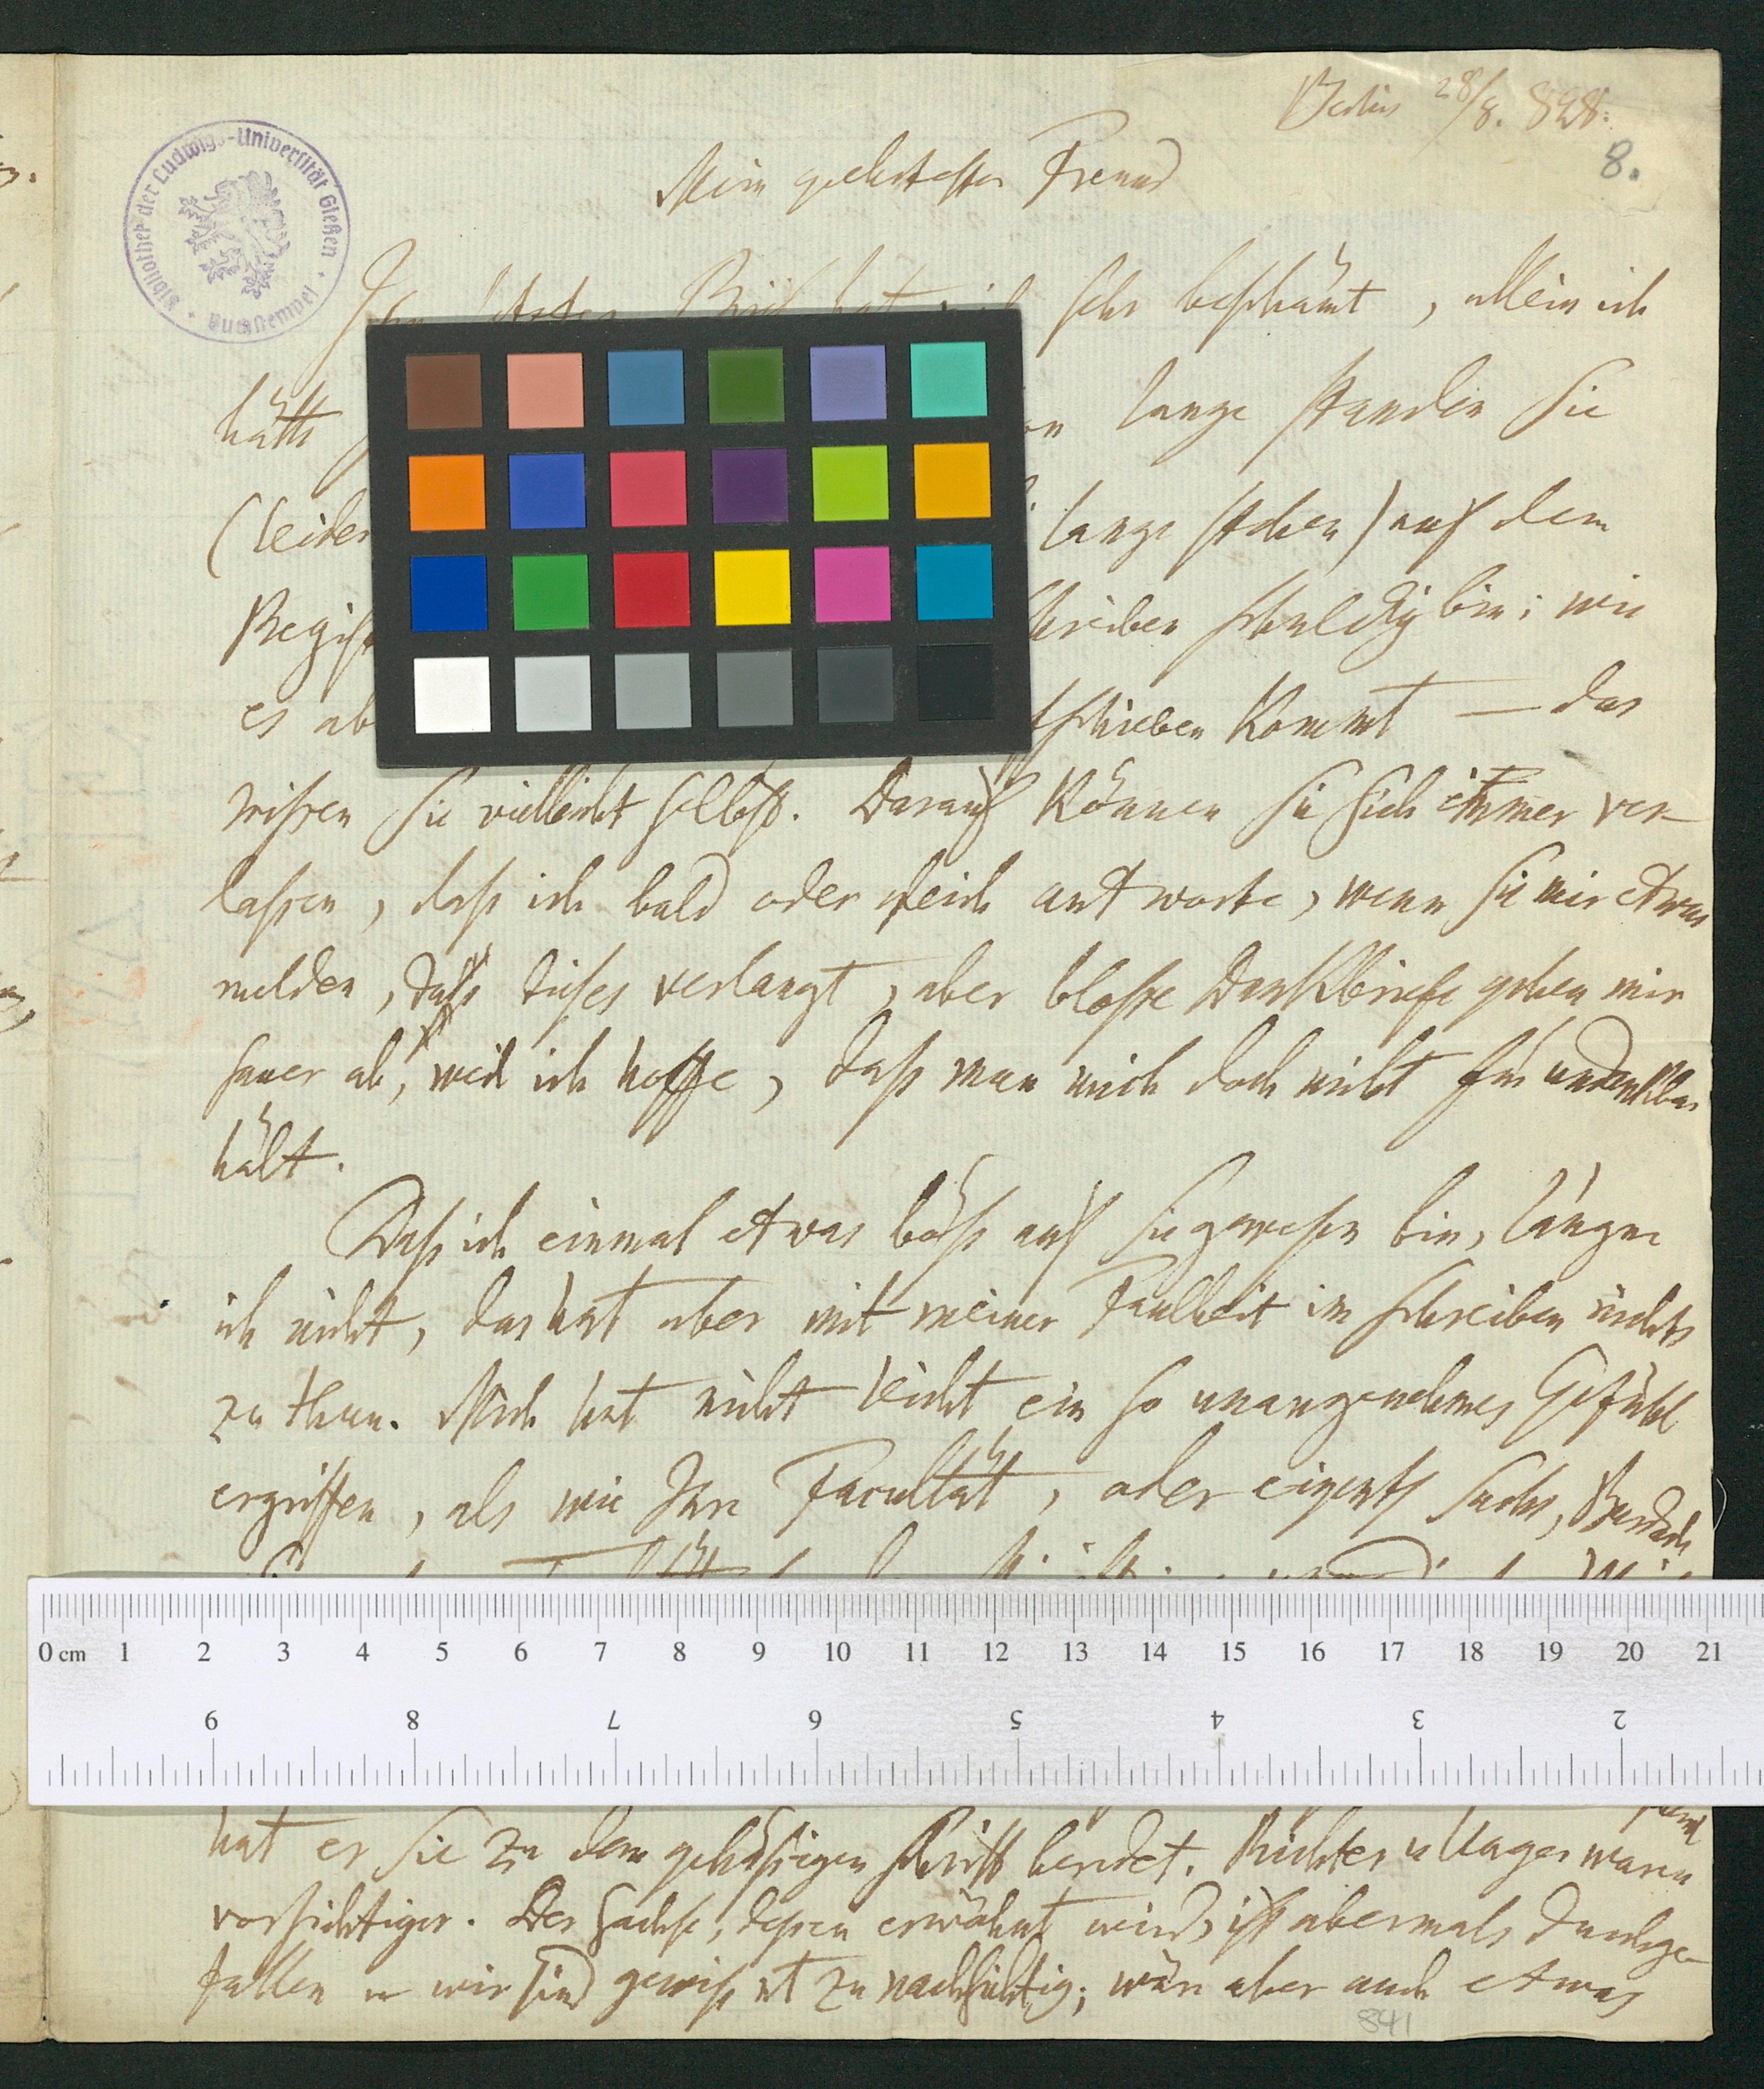 Berlin 28/8. 828.
8.
Bibliothek der Ludwigs-Universität Gießen
Mein geehrtester Freund
Ihr Brief hat mich sehr beschämt, allein ich
hätte lange standen Sie
(leider lange stehen) auf dem
schreiben schuldig bin; wie
es ab kommt — das
wissen Sie vielleicht selbst. Darauf können Sie sich immer ver-
lassen, daß ich bald oder gleich antworte, wenn Sie mir etwas
melden, daß dieses verlangt, aber bloße Dankbriefe gehen mir
sauer ab, weil ich hoffe, daß man mich doch nicht für undankbar
hält.
Daß ich einmal etwas böse auf Sie gewesen bin, läugne
ich nicht, das hat aber mit meiner Faulheit im Schreiben nichts
zu thun. Mich hat nicht leicht ein so unangenehmes Gefühl
ergriffen, als wie Ihre Facultät, oder eigentl Sachs, Burdach
0 cm 1 2 3 4 5 6 7 8 9 10 11 12 13 14 15 16 17 18 19 20 21
9 8 7 6 5 4 3 2
hat er Sie zu dem gehässigen Schritt beredet. Richter u Unger waren
vorsichtiger. Der Sachse, dessen erwähnt wird, ist abermals durchge-
fallen u wir sind gewiß nt zu nachsichtig; wär aber auch etwas
841